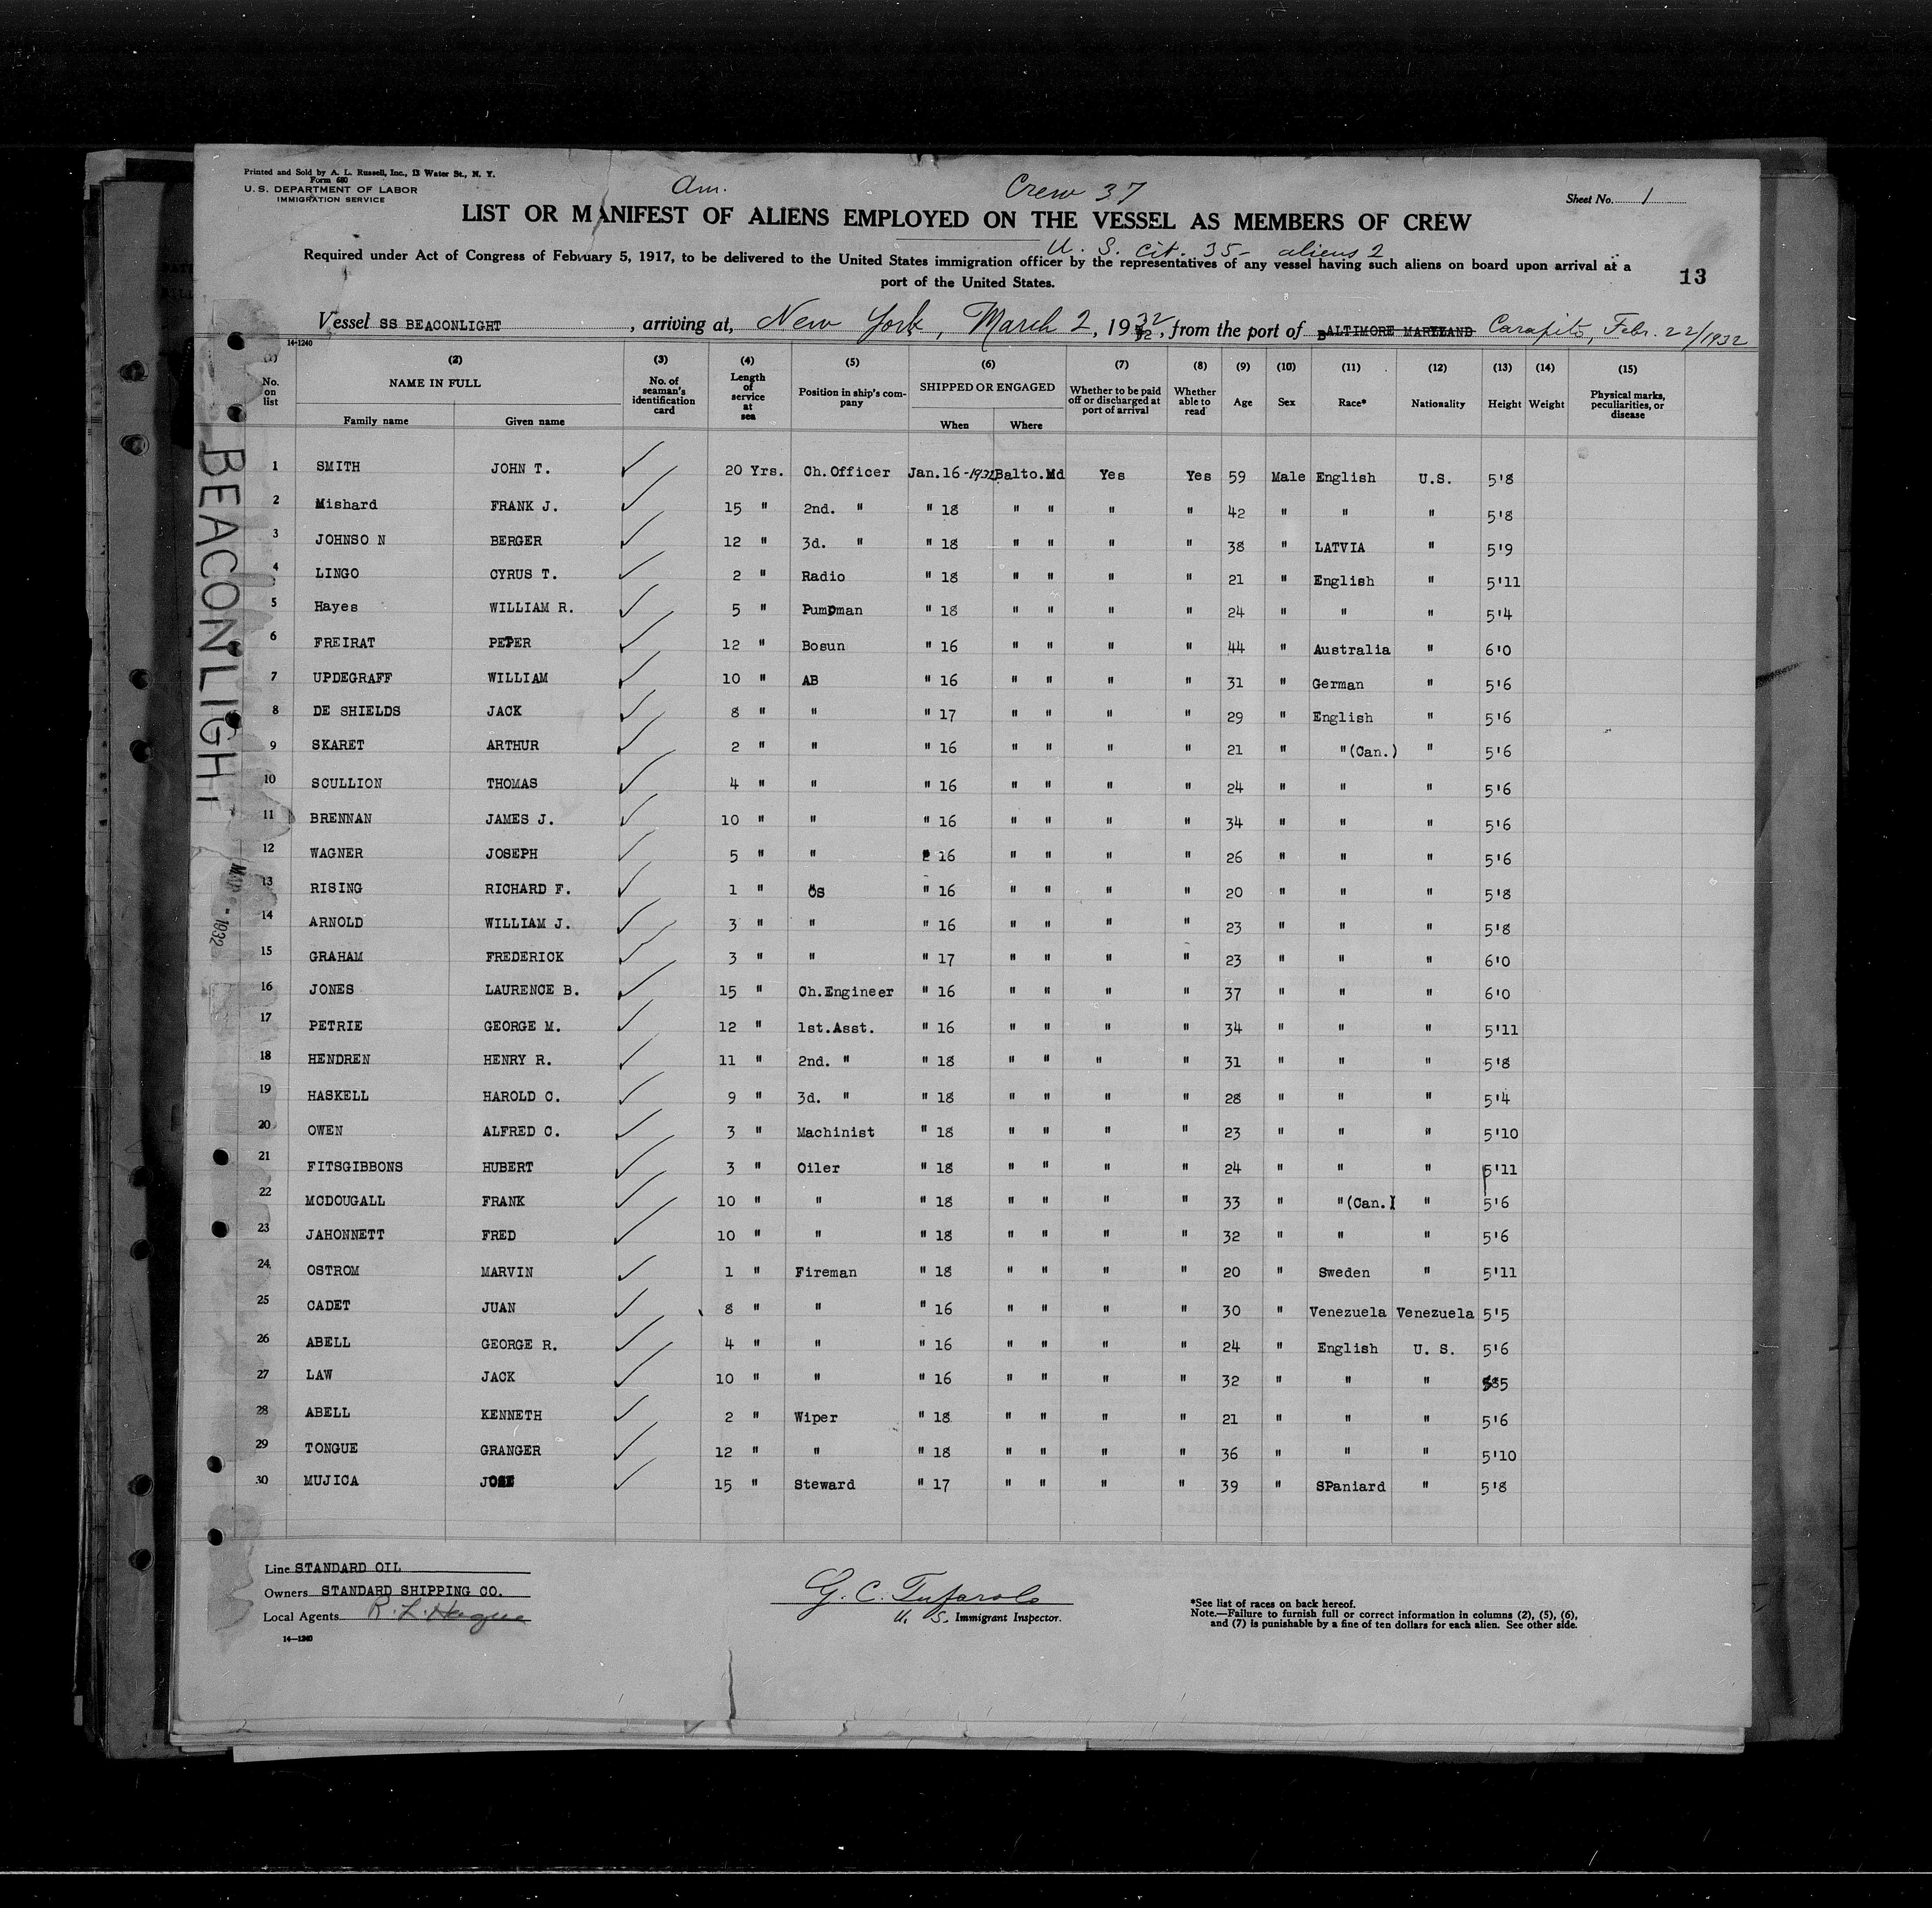 Printed and Sold by A. L. Russell, Inc., 13 Water St., N. Y.
Form 680
U. S. DEPARTMENT OF LABOR
IMMIGRATION SERVICE
Am.
Crew 37
Sheet No. 1
LIST OR MANIFEST OF ALIENS EMPLOYED ON THE VESSEL AS MEMBERS OF CREW
U. S. cit. 35- aliens 2
Required under Act of Congress of February 5, 1917, to be delivered to the United States immigration officer by the representatives of any vessel having such aliens on board upon arrival at a
port of the United States.
13
Vessel SS BEACONLIGHT, arriving at, New York, March 2, 1932, from the port of BALTIMORE MARYLAND Caripito, Febr. 22/1932
14-1240
(1) (2) (3) (4) (5) (6) (7) (8) (9) (10) (11) (12) (13) (14) (15)
No. on list NAME IN FULL No. of seaman's identification card Length of service at sea Position in ship's company SHIPPED OR ENGAGED Whether to be paid off or discharged at port of arrival Whether able to read Age Sex Race* Nationality Height Weight Physical marks, peculiarities, or disease
Family name Given name When Where
1 SMITH JOHN T. 20 Yrs. Ch.Officer Jan.16-1932 Balto.Md Yes Yes 59 Male English U.S. 5'8
2 Mishard FRANK J. 15 " 2nd. " " 18 " " " " 42 " " " 5'8
3 JOHNSO N BERGER 12 " 3d. " " 18 " " " " 38 " LATVIA " 5'9
4 LINGO CYRUS T. 2 " Radio " 18 " " " " 21 " English " 5'11
5 Hayes WILLIAM R. 5 " Pumpman " 18 " " " " 24 " " " 5'4
6 FREIRAT PETER 12 " Bosun " 16 " " " " 44 " Australia " 6'0
7 UPDEGRAFF WILLIAM 10 " AB " 16 " " " " 31 " German " 5'6
8 DE SHIELDS JACK 8 " " " 17 " " " " 29 " English " 5'6
9 SKARET ARTHUR 2 " " " 16 " " " " 21 " "(Can.) " 5'6
10 SCULLION THOMAS 4 " " " 16 " " " " 24 " " " 5'6
11 BRENNAN JAMES J. 10 " " " 16 " " " " 34 " " " 5'6
12 WAGNER JOSEPH 5 " " " 16 " " " " 26 " " " 5'6
13 RISING RICHARD F. 1 " OS " 16 " " " " 20 " " " 5'8
14 ARNOLD WILLIAM J. 3 " " " 16 " " " " 23 " " " 5'8
15 GRAHAM FREDERICK 3 " " " 17 " " " " 23 " " " 6'0
16 JONES LAURENCE B. 15 " Ch.Engineer " 16 " " " " 37 " " " 6'0
17 PETRIE GEORGE M. 12 " 1st.Asst. " 16 " " " " 34 " " " 5'11
18 HENDREN HENRY R. 11 " 2nd. " " 18 " " " " 31 " " " 5'8
19 HASKELL HAROLD C. 9 " 3d. " " 18 " " " " 28 " " " 5'4
20 OWEN ALFRED C. 3 " Machinist " 18 " " " " 23 " " " 5'10
21 FITSGIBBONS HUBERT 3 " Oiler " 18 " " " " 24 " " " 5'11
22 MCDOUGALL FRANK 10 " " " 18 " " " " 33 " "(Can.) " 5'6
23 JAHONNETT FRED 10 " " " 18 " " " " 32 " " " 5'6
24 OSTROM MARVIN 1 " Fireman " 18 " " " " 20 " Sweden " 5'11
25 CADET JUAN 8 " " " 16 " " " " 30 " Venezuela Venezuela 5'5
26 ABELL GEORGE R. 4 " " " 16 " " " " 24 " English U. S. 5'6
27 LAW JACK 10 " " " 16 " " " " 32 " " "
28 ABELL KENNETH 2 " Wiper " 18 " " " " 21 " " " 5'6
29 TONGUE GRANGER 12 " " " 18 " " " " 36 " " " 5'10
30 MUJICA JOSE 15 " Steward " 17 " " " " 39 " SPaniard " 5'8
BEACONLIGHT
1932
Line STANDARD OIL
Owners STANDARD SHIPPING CO.
Local Agents R. L. Hague
14-1240
G. C. Tufarolo
U. S. Immigrant Inspector.
*See list of races on back hereof.
Note.—Failure to furnish full or correct information in columns (2), (5), (6),
and (7) is punishable by a fine of ten dollars for each alien. See other side.